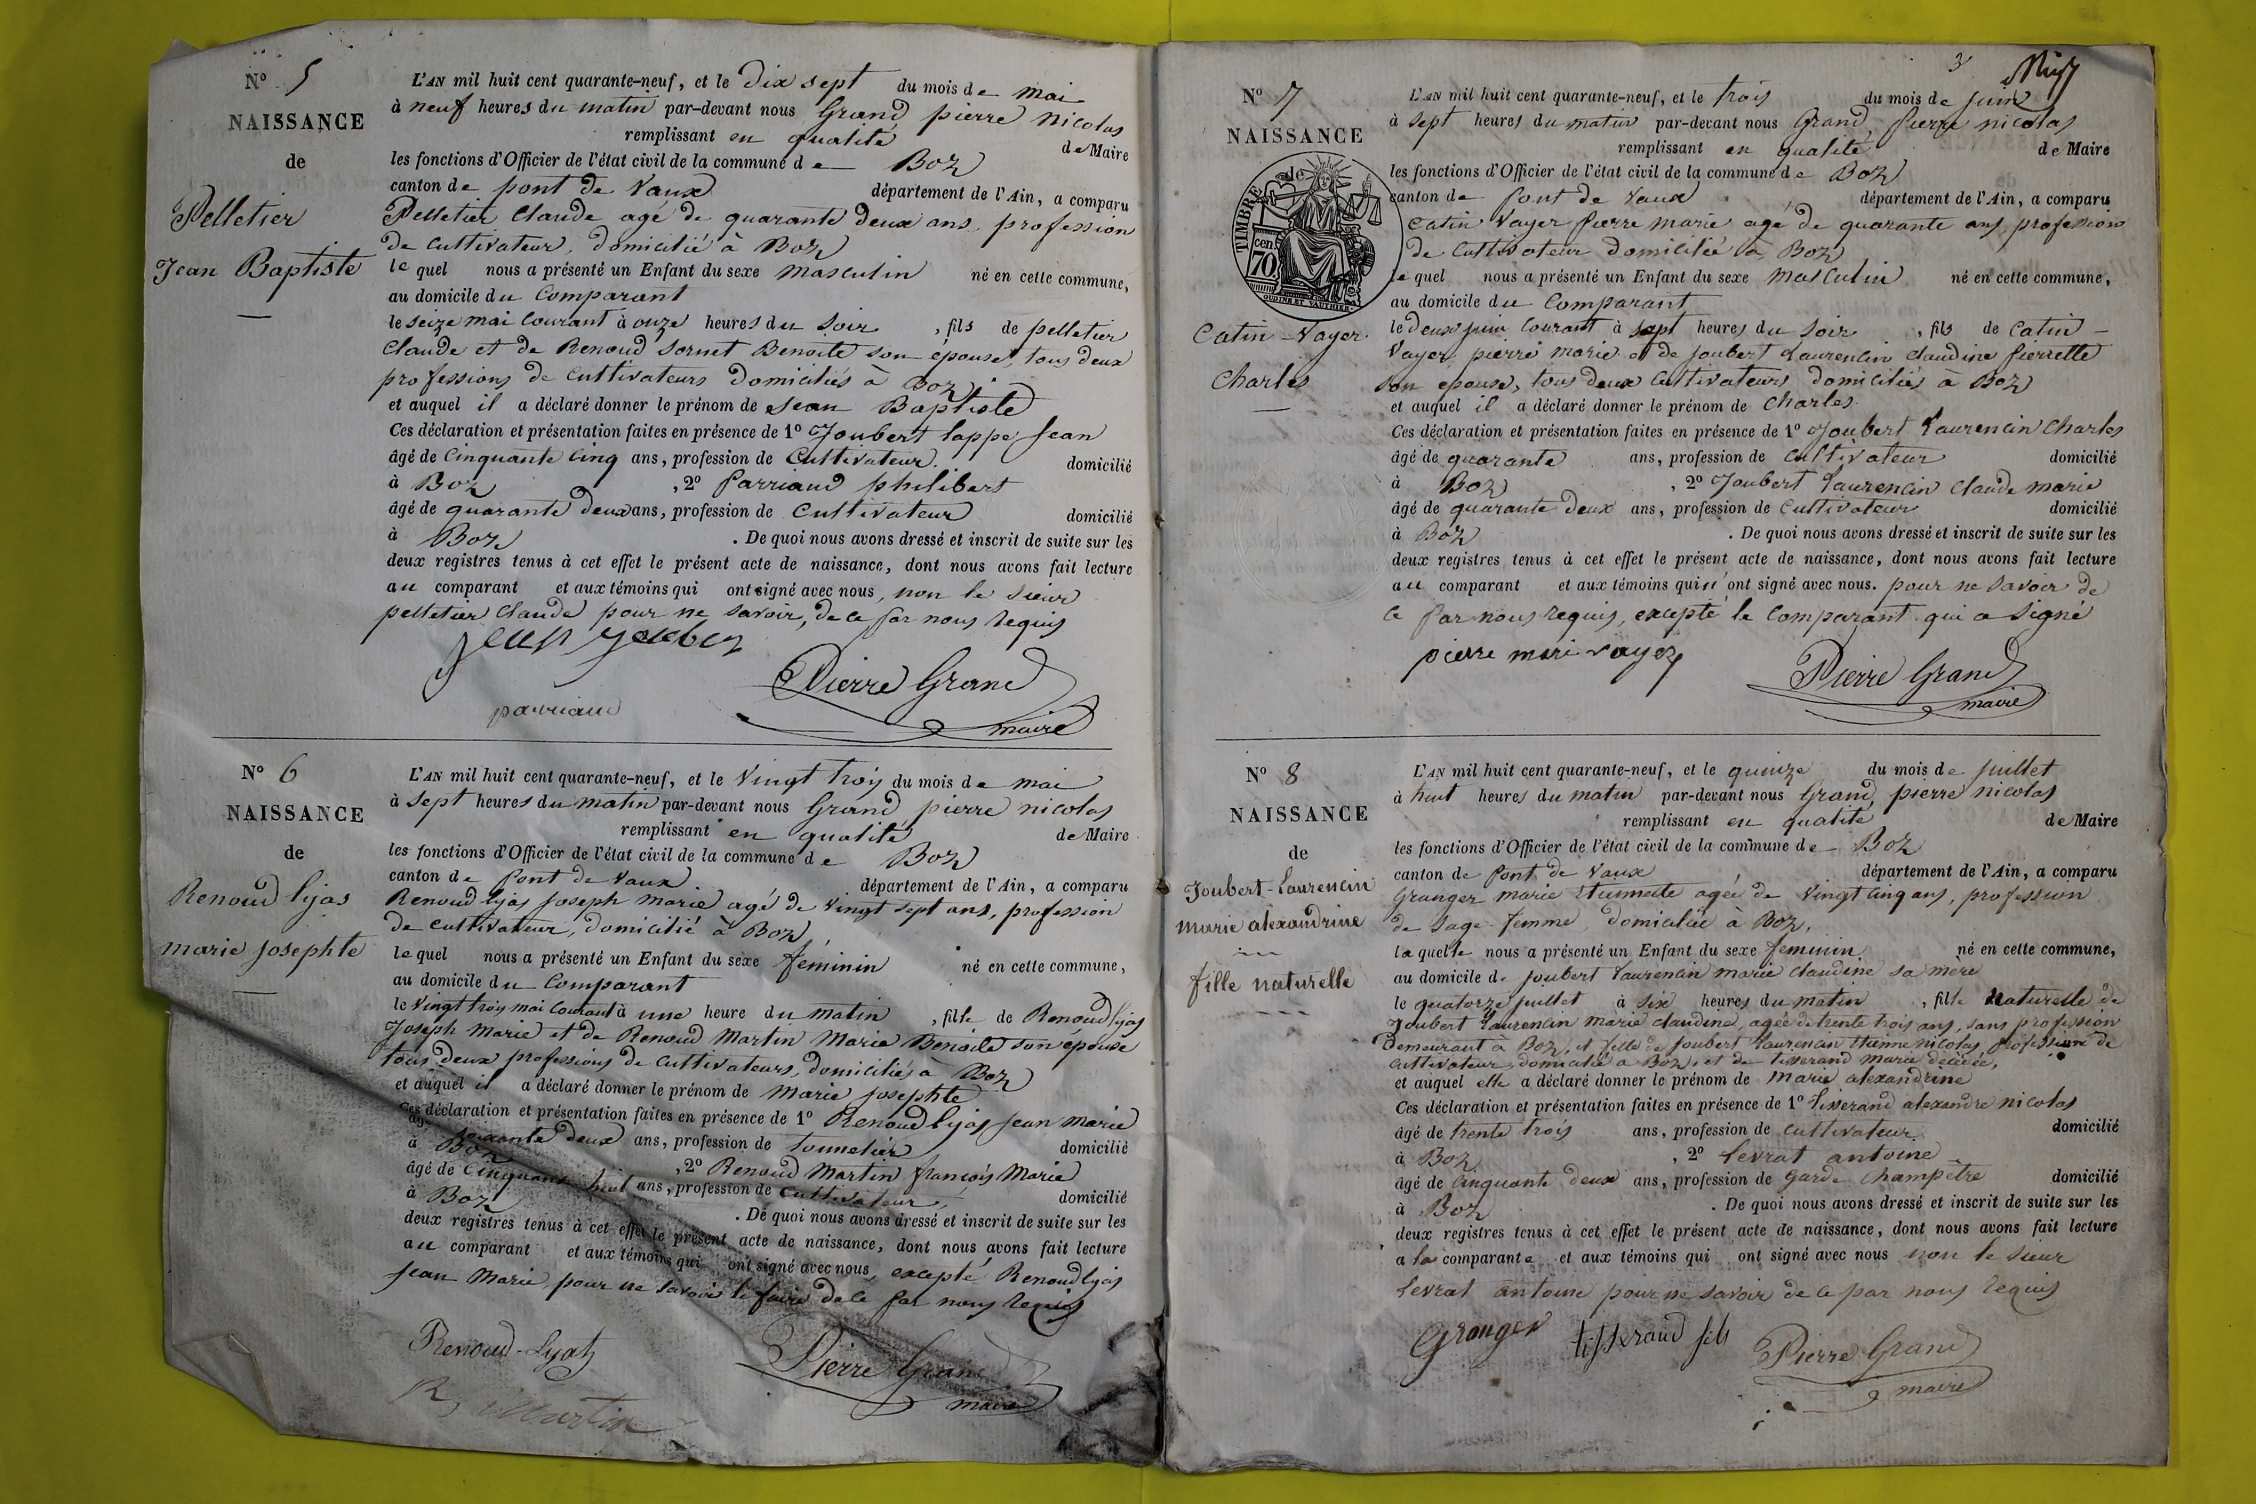 N° 5
NAISSANCE
de
Pelletier
Jean Baptiste
L'AN mil huit cent quarante-neuf, et le dix sept du mois de mai
à neuf heures du matin par-devant nous Grand pierre nicolas
remplissant en qualité de Maire
les fonctions d'Officier de l'état civil de la commune de Boz
canton de pont de Vaux département de l'Ain, a comparu
Pelletier Claude agé de quarante deux ans, profession
de cultivateur, domicilié à Boz
lequel nous a présenté un Enfant du sexe masculin né en cette commune,
au domicile du Comparant
le seize mai courant à onze heures du soir, fils de pelletier
Claude et de Renoud Sornet Benoite son épouse, tous deux
professions de cultivateurs domiciliés à Boz
et auquel il a déclaré donner le prénom de Jean Baptiste
Ces déclaration et présentation faites en présence de 1° Joubert lappe Jean
âgé de Cinquante Cinq ans, profession de Cultivateur. domicilié
à Boz, 2° Parriaud philibert
âgé de quarante deux ans, profession de cultivateur domicilié
à Boz. De quoi nous avons dressé et inscrit de suite sur les
deux registres tenus à cet effet le présent acte de naissance, dont nous avons fait lecture
au comparant et aux témoins qui ont signé avec nous, non le sieur
pelletier Claude pour ne savoir, de ce par nous requis
Pierre Grand
parriaud
maire
N° 6
NAISSANCE
de
Renoud lyas
marie josephte
L'AN mil huit cent quarante-neuf, et le Vingt trois du mois de mai
à sept heures du matin par-devant nous Grand pierre nicolas
remplissant en qualité de Maire
les fonctions d'Officier de l'état civil de la commune de Boz
canton de Pont de Vaux département de l'Ain, a comparu
Renoud lyas joseph marie agé de Vingt sept ans, profession
de cultivateur, domicilié à Boz
lequel nous a présenté un Enfant du sexe féminin né en cette commune,
au domicile du Comparant
le Vingt trois mai Courant à une heure du matin, fille de Renoud lyas
Joseph Marie et de Renoud Martin Marie Benoite son épouse
tous deux professions de cultivateurs, domiciliés à Boz
et auquel il a déclaré donner le prénom de Marie josephte
Ces déclaration et présentation faites en présence de 1° Renoud lyas jean marie
âgé soixante deux ans, profession de tonnelier domicilié
à Boz, 2° Renoud Martin françois Marie
âgé de Cinquante huit ans, profession de cultivateur, domicilié
à Boz. De quoi nous avons dressé et inscrit de suite sur les
deux registres tenus à cet effet le présent acte de naissance, dont nous avons fait lecture
au comparant et aux témoins qui ont signé avec nous, excepté Renoud lyas
jean Marie pour ne savoir le faire de ce par nous requis
Renoud-Lyat
Pierre Grand
Martin
maire
3
N° 7
NAISSANCE
de
TIMBRE
cen
70
OUDINE ET VAUTHIER
Catin-Vayer
Charles
L'AN mil huit cent quarante-neuf, et le trois du mois de juin
à sept heures du matin par-devant nous Grand, pierre nicolas
remplissant en qualité de Maire
les fonctions d'Officier de l'état civil de la commune de Boz
canton de Pont de Vaux département de l'Ain, a comparu
Catin Vayer Pierre Marie agé de quarante ans, profession
de Cultivateur domicilié à Boz
lequel nous a présenté un Enfant du sexe Masculin né en cette commune,
au domicile du Comparant
le deux juin courant à sept heures du soir, fils de Catin-
Vayer pierre marie et de joubert Laurencin Claudine Pierrette
son épouse, tous deux cultivateurs domiciliés à Boz
et auquel il a déclaré donner le prénom de Charles
Ces déclaration et présentation faites en présence de 1° Joubert Laurencin Charles
âgé de quarante ans, profession de cultivateur domicilié
à Boz, 2° Joubert Laurencin Claude marie
âgé de quarante deux ans, profession de cultivateur domicilié
à Boz. De quoi nous avons dressé et inscrit de suite sur les
deux registres tenus à cet effet le présent acte de naissance, dont nous avons fait lecture
au comparant et aux témoins qui n'ont signé avec nous. pour ne savoir de
ce par nous requis, excepté le Comparant qui a signé
pierre mari vayer
Pierre Grand
maire
N° 8
NAISSANCE
de
Joubert-Laurencin
marie alexandrine
fille naturelle
L'AN mil huit cent quarante-neuf, et le quinze du mois de juillet
à huit heures du matin par-devant nous Grand, pierre nicolas
remplissant en qualité de Maire
les fonctions d'Officier de l'état civil de la commune de Boz
canton de Pont de Vaux département de l'Ain, a comparu
Granger marie Etiennette agée de Vingt cinq ans, profession
de sage-femme, domiciliée à Boz,
laquelle nous a présenté un Enfant du sexe féminin né en cette commune,
au domicile de joubert Laurencin marie claudine sa mère
le quatorze juillet à six heures du matin, fille Naturelle de
Joubert Laurencin marie claudine, agée de trente trois ans, sans profession
demeurant à Boz, et fille de Joubert Laurencin Etienne nicolas, profession de
cultivateur, domicilié à Boz, et de tisserand marie décédée,
et auquel elle a déclaré donner le prénom de marie alexandrine
Ces déclaration et présentation faites en présence de 1° tisserand alexandre nicolas
âgé de trente trois ans, profession de cultivateur domicilié
à Boz, 2° levrat antoine
âgé de Cinquante deux ans, profession de Garde Champêtre domicilié
à Boz. De quoi nous avons dressé et inscrit de suite sur les
deux registres tenus à cet effet le présent acte de naissance, dont nous avons fait lecture
a la comparante et aux témoins qui ont signé avec nous non le sieur
levrat antoine pour ne savoir de ce par nous requis
Granger tisserand fils Pierre Grand
maire